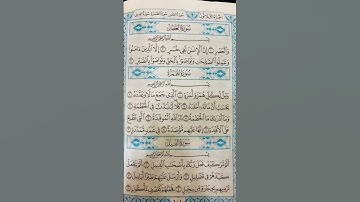 سُورَةُ العَصْرِ
بِسْمِ اللَّهِ الرَّحْمَٰنِ الرَّحِيمِ
وَالْعَصْرِ ١ إِنَّ الْإِنسَٰنَ لَفِي خُسْرٍ ٢ إِلَّا الَّذِينَ ءَامَنُوا
وَعَمِلُوا الصَّٰلِحَٰتِ وَتَوَاصَوْا بِالْحَقِّ وَتَوَاصَوْا بِالصَّبْرِ ٣
سُورَةُ الهُمَزَةِ
بِسْمِ اللَّهِ الرَّحْمَٰنِ الرَّحِيمِ
وَيْلٌ لِّكُلِّ هُمَزَةٍ لُّمَزَةٍ ١ الَّذِي جَمَعَ مَالًا وَعَدَّدَهُ ٢
يَحْسَبُ أَنَّ مَالَهُ أَخْلَدَهُ ٣ كَلَّا لَيُنۢبَذَنَّ فِي الْحُطَمَةِ ٤
وَمَا أَدْرَىٰكَ مَا الْحُطَمَةُ ٥ نَارُ اللَّهِ الْمُوقَدَةُ ٦ الَّتِي تَطَّلِعُ
عَلَى الْأَفْـِٔدَةِ ٧ إِنَّهَا عَلَيْهِم مُّؤْصَدَةٌ ٨ فِي عَمَدٍ مُّمَدَّدَةٍ ٩
سُورَةُ الفِيلِ
بِسْمِ اللَّهِ الرَّحْمَٰنِ الرَّحِيمِ
أَلَمْ تَرَ كَيْفَ فَعَلَ رَبُّكَ بِأَصْحَٰبِ الْفِيلِ ١ أَلَمْ يَجْعَلْ
كَيْدَهُمْ فِي تَضْلِيلٍ ٢ وَأَرْسَلَ عَلَيْهِمْ طَيْرًا أَبَابِيلَ ٣
تَرْمِيهِم بِحِجَارَةٍ مِّن سِجِّيلٍ ٤ فَجَعَلَهُمْ كَعَصْفٍ مَّأْكُولٍ ٥